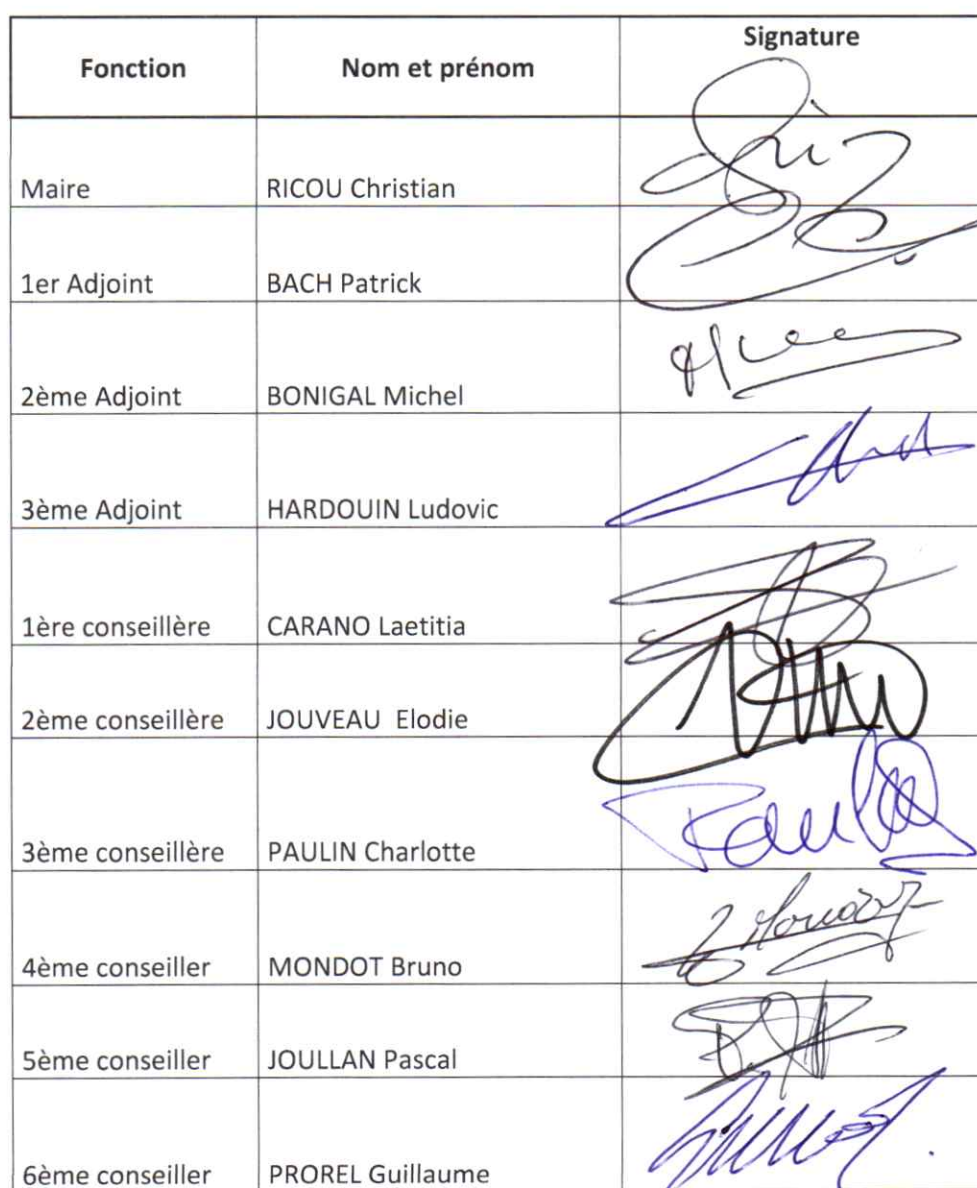 Fonction Nom et prénom Signature
Maire RICOU Christian
1er Adjoint BACH Patrick
2ème Adjoint BONIGAL Michel
3ème Adjoint HARDOUIN Ludovic
1ère conseillère CARANO Laetitia
2ème conseillère JOUVEAU Elodie
3ème conseillère PAULIN Charlotte
4ème conseiller MONDOT Bruno
5ème conseiller JOULLAN Pascal
6ème conseiller PROREL Guillaume